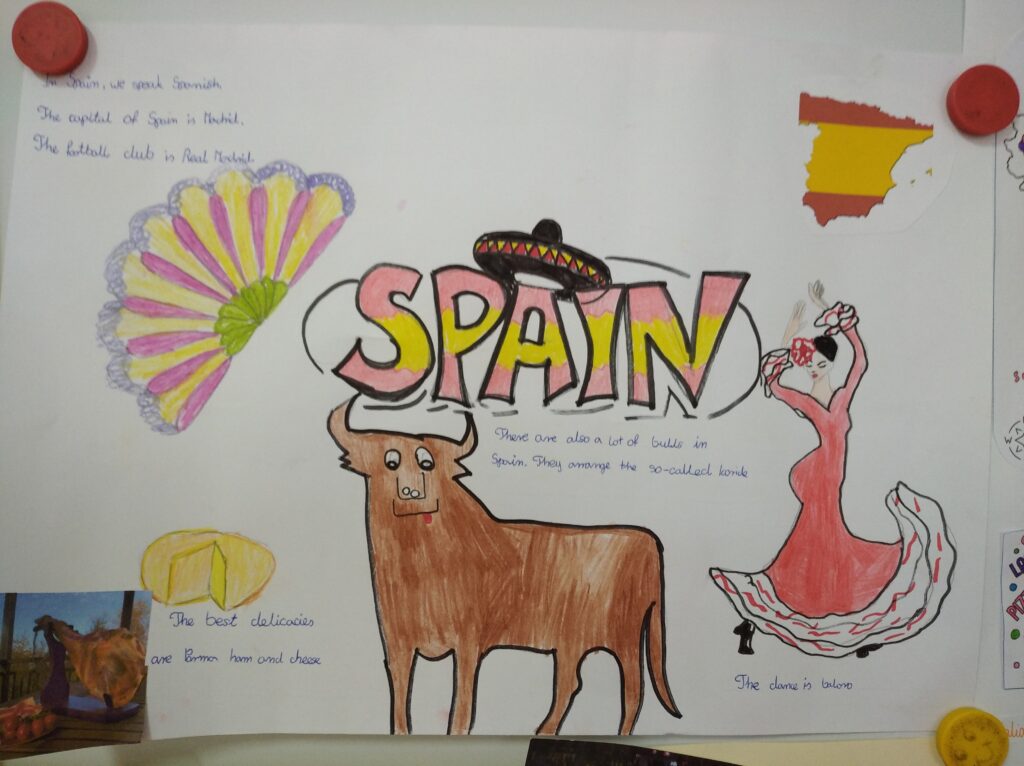 In Spain, we speak Spanish.
The capital of Spain is Madrid.
The football club is Real Madrid.
SPAIN
There are also a lot of bulls in
Spain. They arrange the so-called koride
The best delicacies
are Parma ham and cheese
The dance is